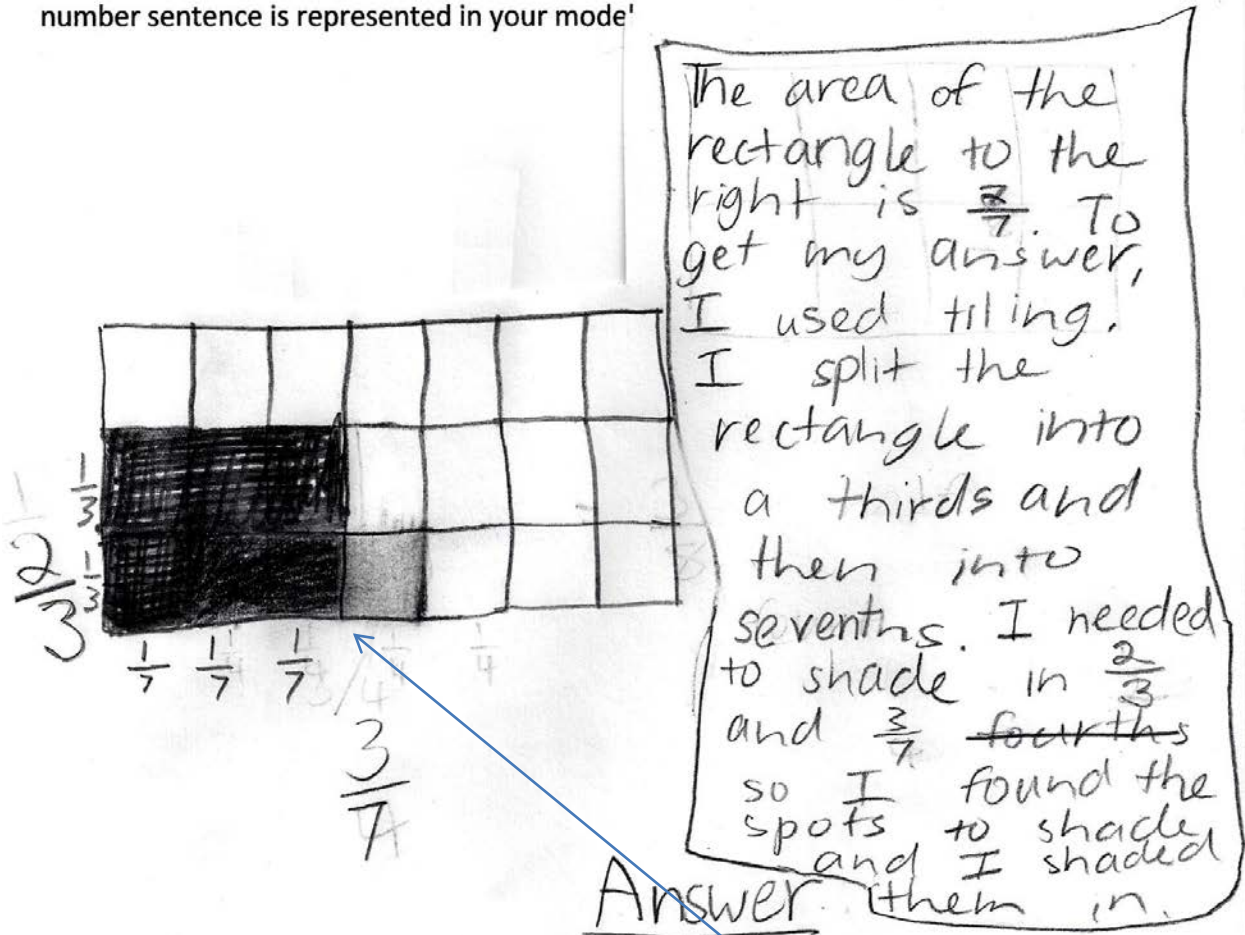 number sentence is represented in your mode
The area of the
rectangle to the
right is 2/7. To
get my answer,
I used tiling.
I split the
rectangle into
a thirds and
then into
sevenths. I needed
to shade in 2/3
and 3/7 fourths
so I found the
spots to shade
and I shaded
them in.
1/3
1/3
2/3
1/7 1/7 1/7
3/7
Answer